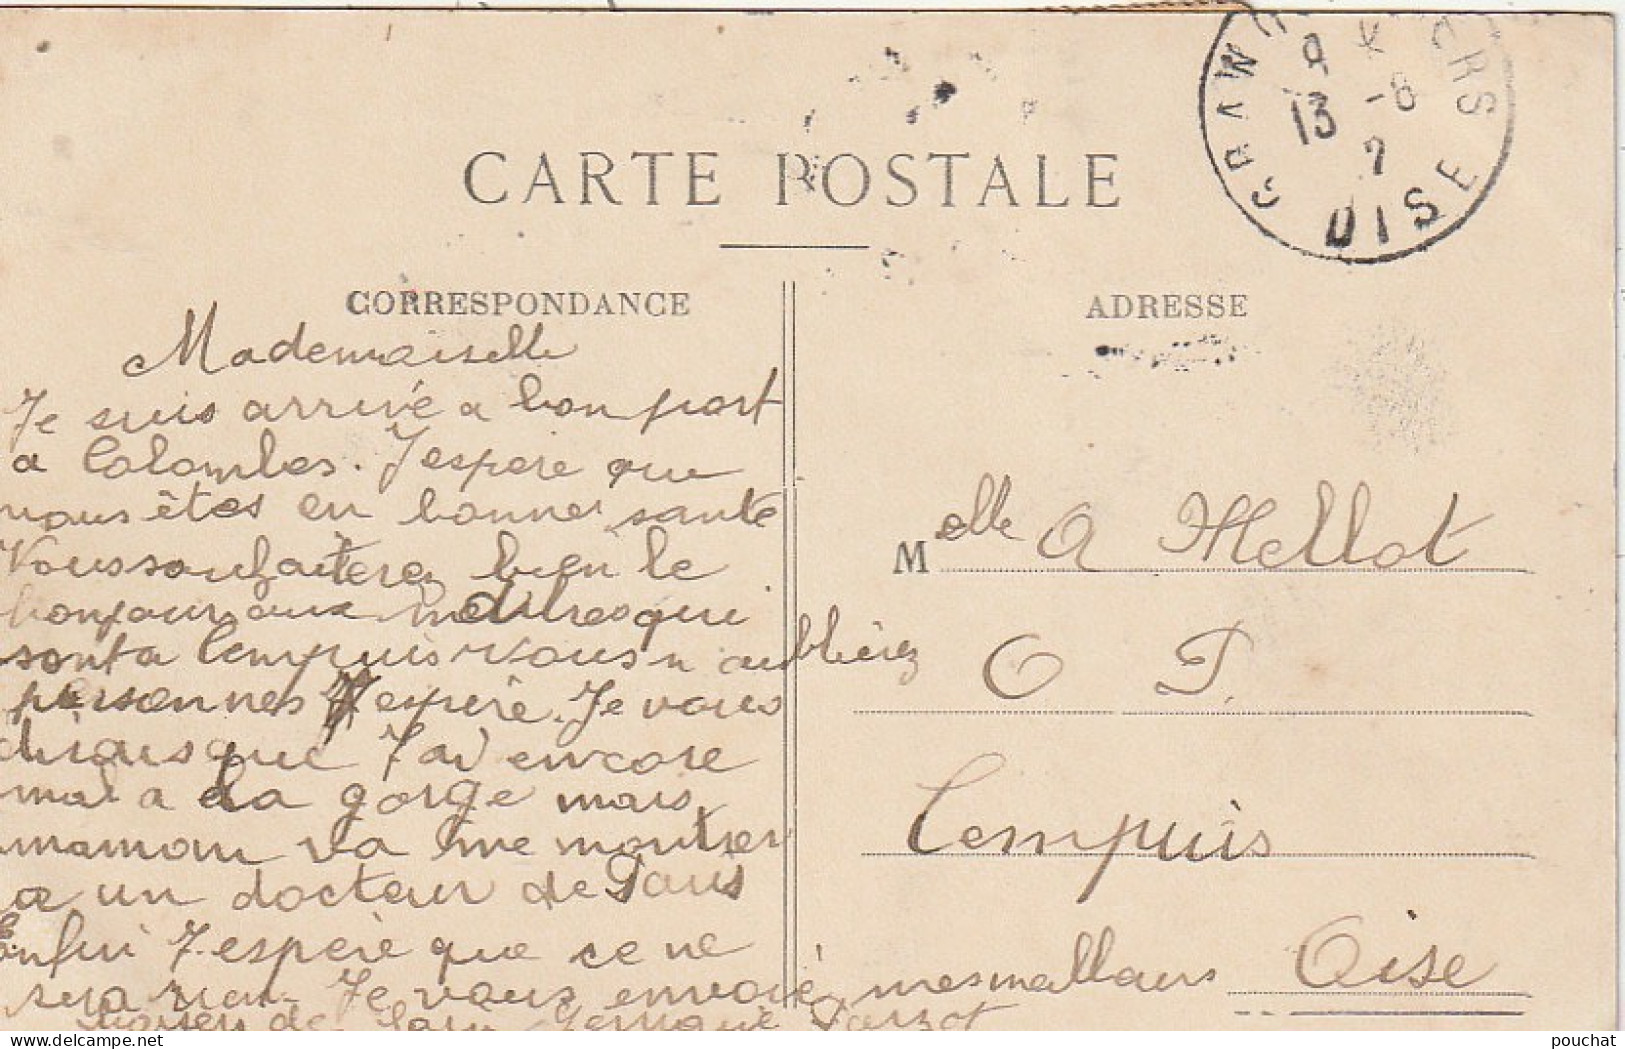 CARTE POSTALE
GRANDVILLIERS
13 -8
OISE
CORRESPONDANCE
Mademoiselle
Je suis arrivé a bon port
a Colombes. J'espère que
vous êtes en bonne santé
Vous souhaiterez bien le
bonjour aux maitres qui
sont a Cempuis vous n oublierez
personnes J espère. Je vous
dirais que J'ai encore
mal a la gorge mais
maman va me montrer
a un docteur de Paris
Enfin J'espère que ce ne
sera rien. Je vous envoie mes meillaurs
baisers de loin
ADRESSE
Melle A Mellot
O P.
Cempuis
Oise
pouchat